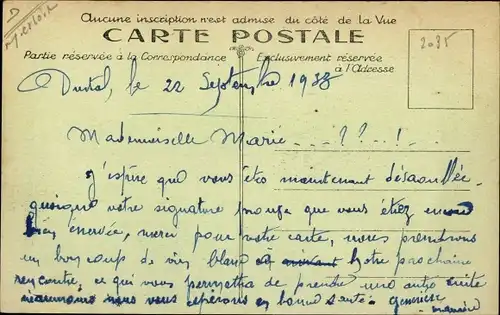 Aucune inscription n'est admise du côté de la Vue
CARTE POSTALE
Partie réservée à la Correspondance
Exclusivement réservée
à l'Adresse
2035
Durtal, le 22 Septembre 1938
Mademoiselle Marie ...??..!..
J'espère que vous êtes maintenant désaoullée
quoique votre signature prouve que vous étiez encore
bien énervée, merci pour votre carte, nous prendrons
un bon coup de vin blanc à notre prochaine
rencontre, ce qui vous permettra de prendre une autre cuite
nous vous espérons en bonne santé.